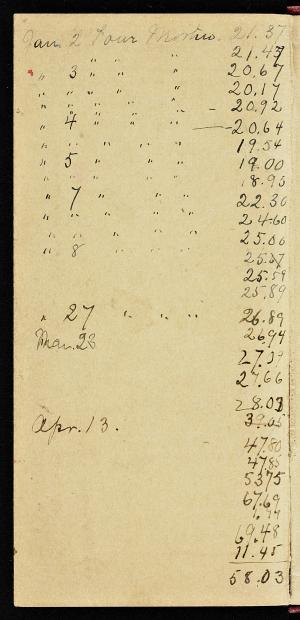 Jan. 2 Four 21.37
" " " " 21.47
" 3 " " " 20.67
" " " " 20.17
" " " " - 20.92
" 4 " " " - 20.64
" " " " 19.54
" 5 " " " 19.00
" " " " 18.95
" 7 " " " 22.30
" " " " 24.60
" " " " 25.00
" 8 " " " 25.57
25.59
25.89
" 27 " " " 26.89
Mar. 23 26.94
27.39
27.66
28.03
Apr. 13. 39.05
47.80
47.85
53.75
67.69
69.48
11.45
58.03